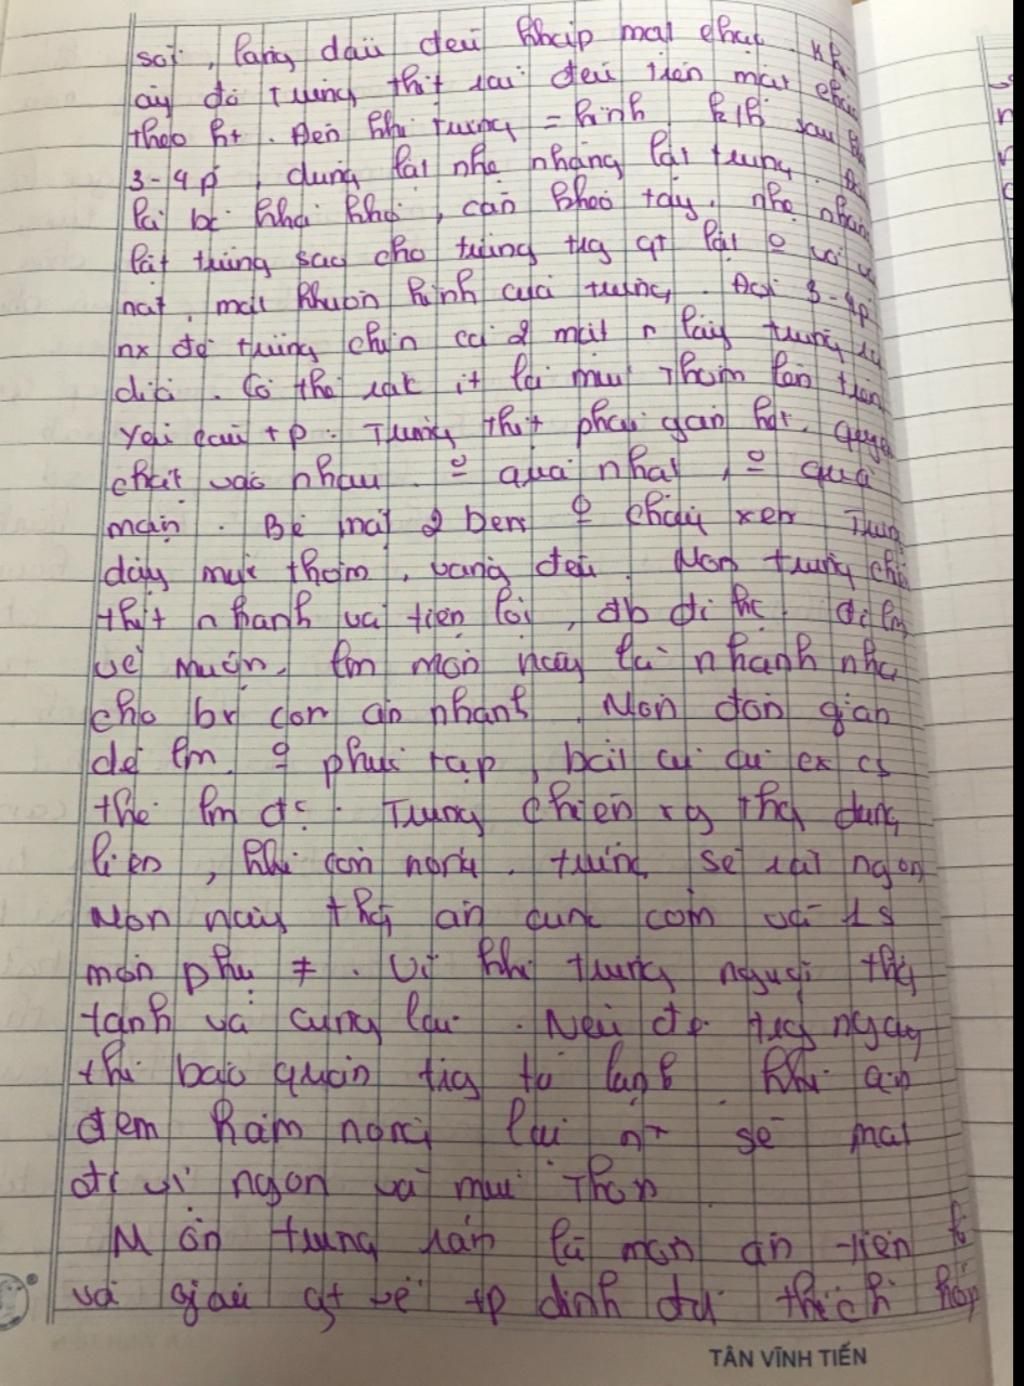 sôi, láng dầu đều khắp mặt chảo. Khi
ấy đổ trứng thịt rải đều trên mặt chảo
theo ht. Đến khi trứng = hình
3-4p, dùng lật nhẹ nhàng lật trứng.
là bc khá khó, cần khéo tay, nhẹ nhàng
lật trứng sao cho trứng trg qt lật o vỡ
nát, mất khuôn hình của trứng. Đợi 3-4p
nx để trứng chín cả 2 mặt r lấy trứng ra
dĩa. Có thể rắc ít lá mùi thơm lên trên
Yêu cầu tp: Trứng thịt phải gắn kết, quyện
chặt vào nhau o quá nhạt, o quá
mặn. Bề mặt 2 bên o cháy xém
dậy mùi thơm, vàng đều. Món trứng chiên
thịt nhanh và tiện lợi, đb đi hc, đi lm
về muộn, lm món này là nhanh nhất
cho br con ăn nhanh. Món đơn giản
dễ lm, o phức tạp, bất cứ ai cx cs
thể lm đc. Trứng chiên xg thg dùng
liền, khi còn nóng, trứng sẽ rất ngon
Món này thg ăn cùng cơm và 1s
món phụ ≠. Vì khi trứng nguội thg
tanh và cứng lại. Nếu để trg ngày
thì bảo quản trg tủ lạnh. Khi ăn
đem hâm nóng lại nt sẽ mất
đi vị ngon và mùi thơm
Món trứng rán là món ăn tiện
và giàu gt về tp dinh dg thích hợp
TÂN VĨNH TIẾN